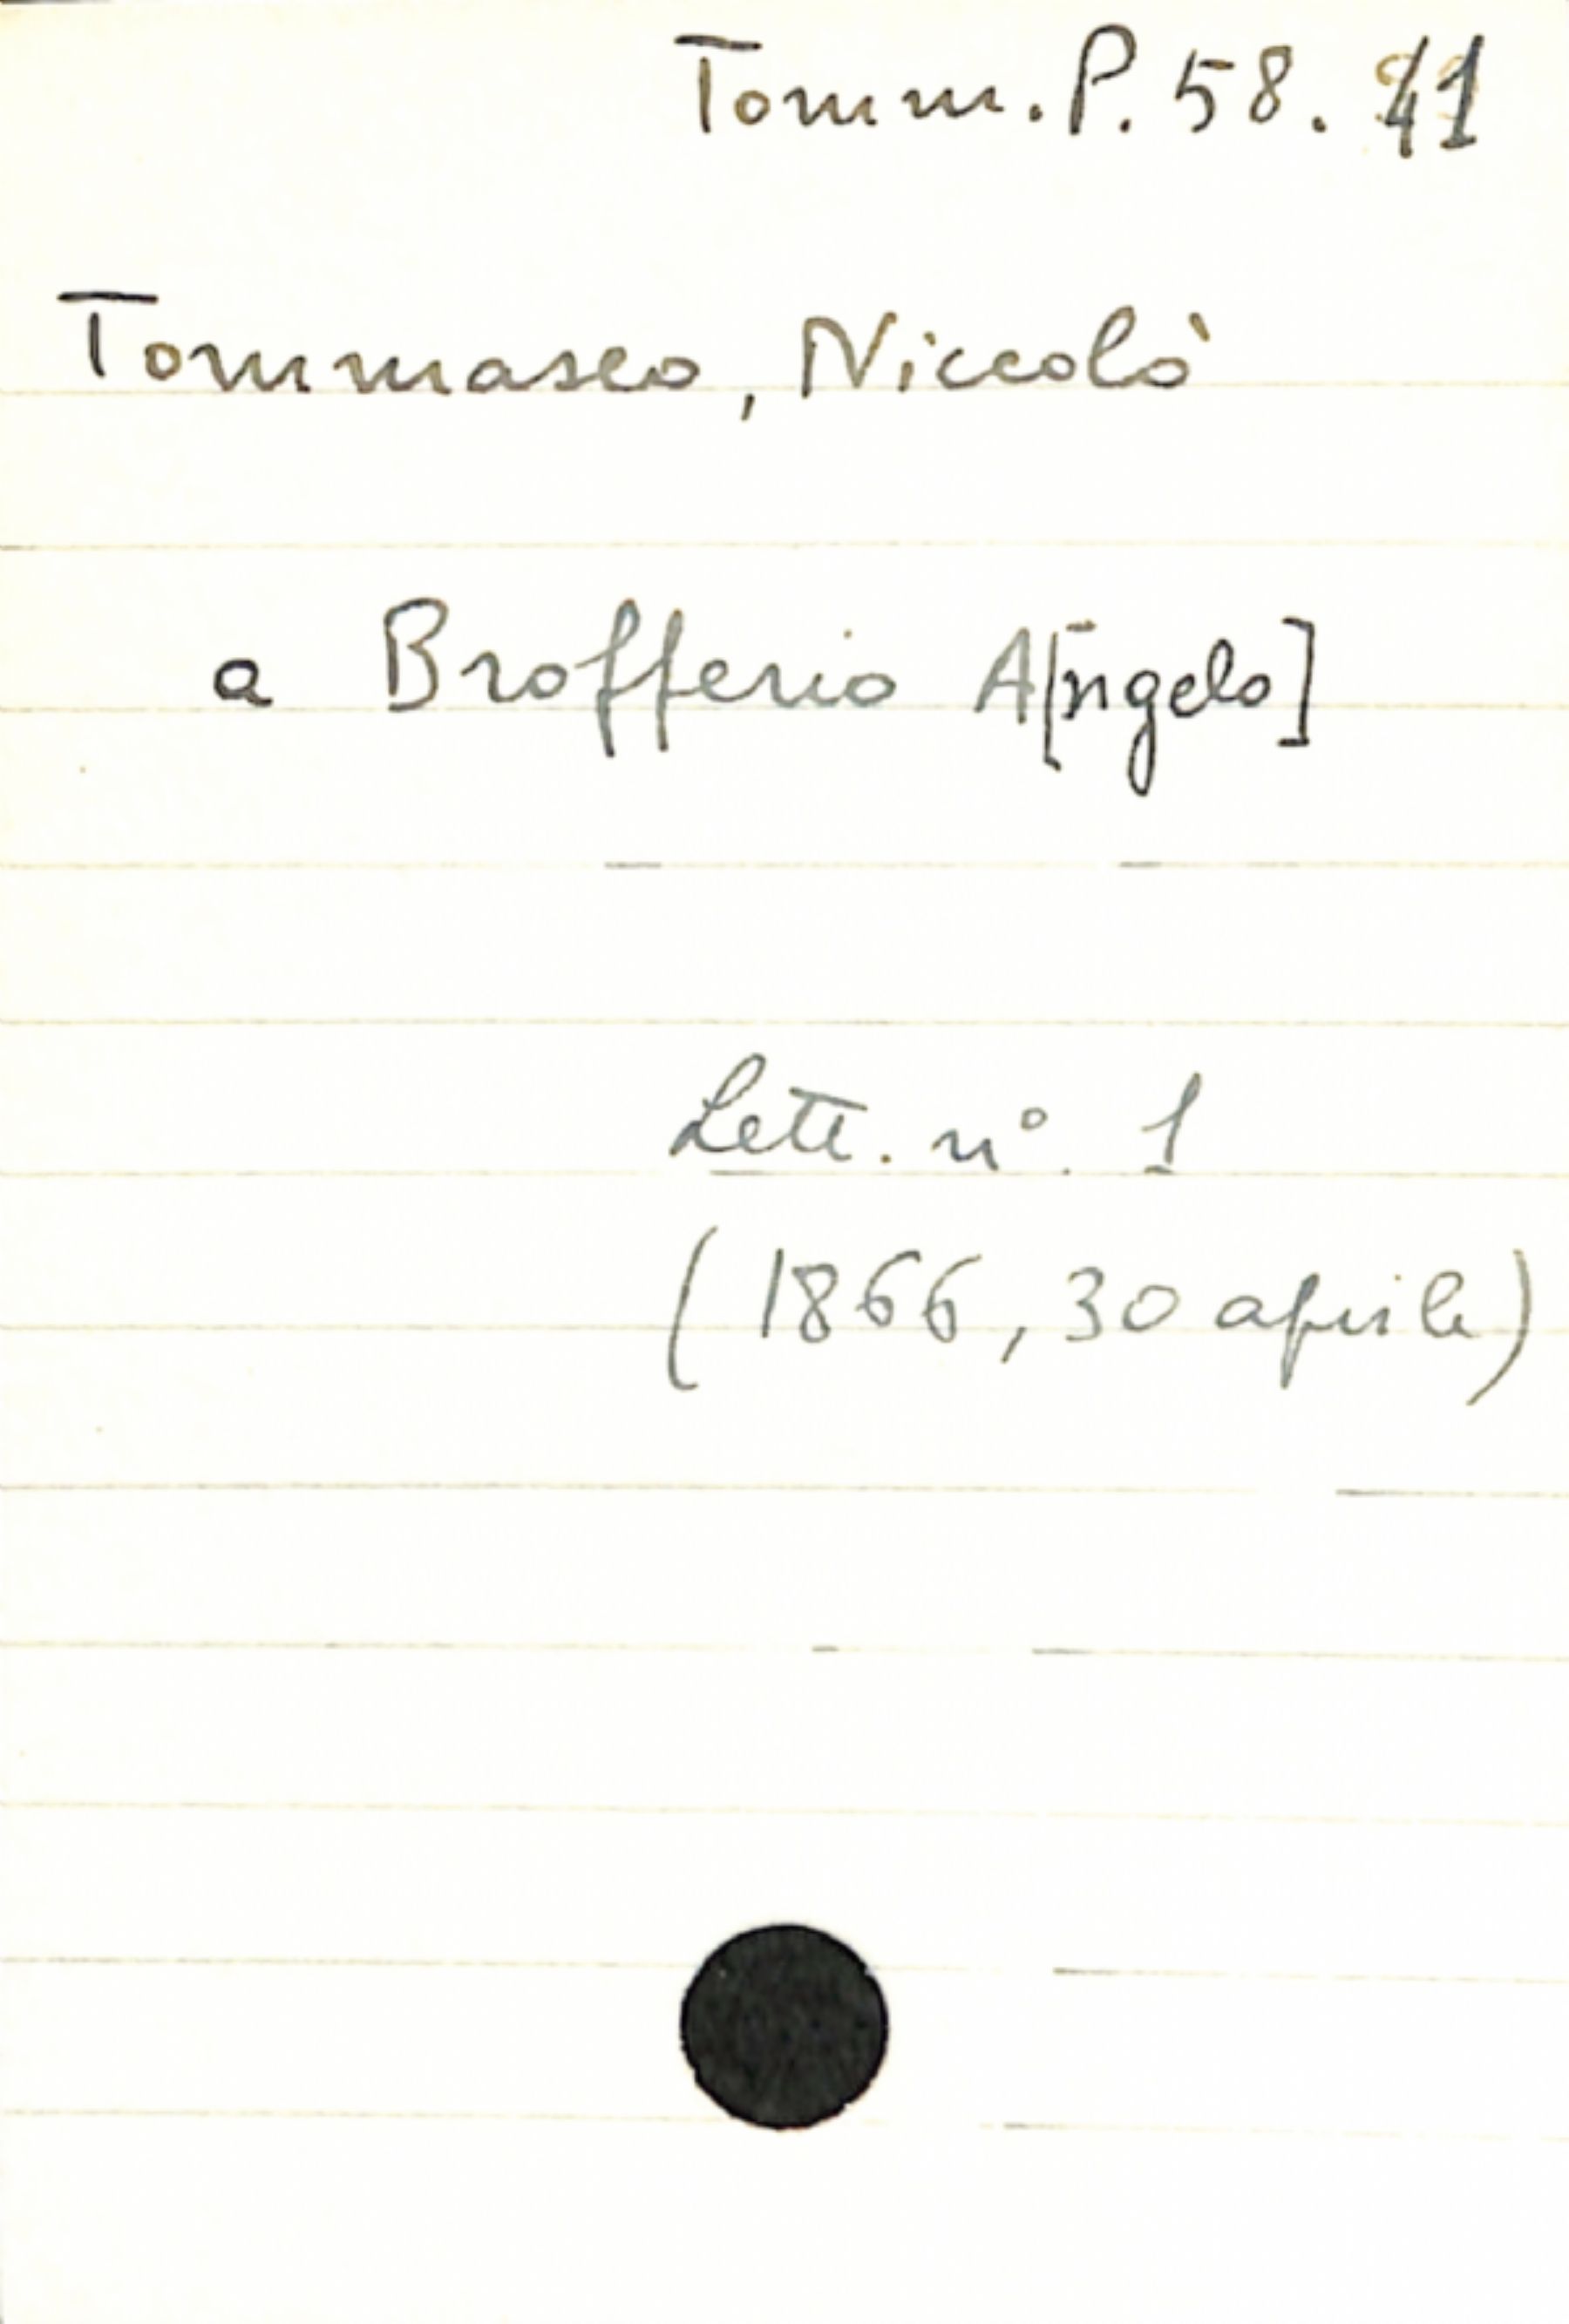 Tomm. P. 58. 41
Tommaseo, Niccolò
a Brofferio A[ngelo]
Lett. n°. 1
(1866, 30 aprile)